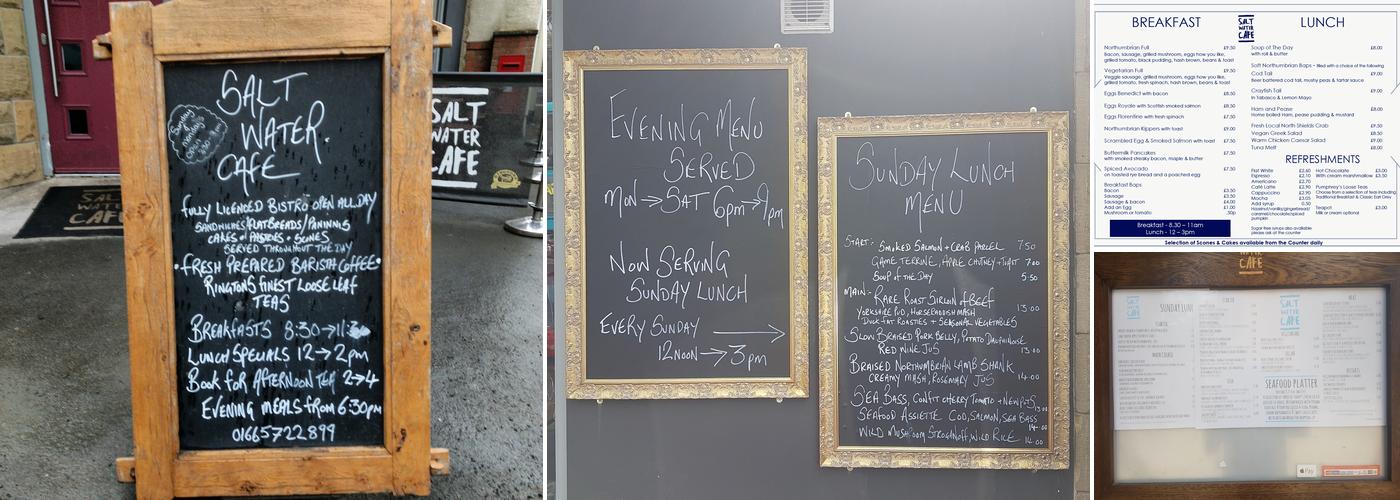 SALT
WATER.
CAFE
Sunday
FULLY LICENCED BISTRO OPEN ALL DAY
SANDWICHES FLATBREADS/PANINNIS
CAKES & PASTRIES & SCONES
SERVED THROUGHOUT THE DAY
• FRESH PREPARED BARISTA COFFEE •
RINGTONS FINEST LOOSE LEAF
TEAS
BREAKFASTS 8:30→11:
LUNCH SPECIALS 12→2pm
BOOK for AFTERNOON TEA 2→4
EVENING MEALS from 6:30pm
01665722899
SALT
WATER
CAFE
SALT
WATER
CAFE
EVENING MENU
SERVED
MON→SAT 6pm→9pm
NOW SERVING
SUNDAY LUNCH
EVERY SUNDAY →
12NOON→3pm
SUNDAY LUNCH
MENU
START:- SMOKED SALMON + CRAB PARCEL 7.50
GAME TERRINE, APPLE CHUTNEY + TOAST 7.00
SOUP of THE DAY 5.50
MAIN:- RARE ROAST SIRLOIN of BEEF
YORKSHIRE PUD, HORSERADISH MASH 13.00
DUCK FAT ROASTIES + SEASONAL VEGETABLES
SLOW BRAISED PORK BELLY, POTATO DAUPHINOISE
RED WINE JUS 13.00
BRAISED NORTHUMBRIAN LAMB SHANK
CREAMY MASH, ROSEMARY JUS 14.00
SEA BASS, CONFIT CHERRY TOMATO + NEW POTS 13.00
SEAFOOD ASSIETTE COD, SALMON, SEA BASS 14.00
WILD MUSHROOM STROGANOFF, WILD RICE 14.00
BREAKFAST
Northumbrian Full £9.50
Bacon, sausage, grilled mushroom, eggs how you like,
grilled tomato, black pudding, hash brown, beans & toast
Vegetarian Full £9.50
Veggie sausage, grilled mushroom, eggs how you like,
grilled tomato, fresh spinach, hash brown, beans & toast
Eggs Benedict with bacon £8.50
Eggs Royale with Scottish smoked salmon £8.50
Eggs Florentine with fresh spinach £7.50
Northumbrian Kippers with toast £9.00
Scrambled Egg & Smoked Salmon with toast £7.50
Buttermilk Pancakes £7.50
with smoked streaky bacon, maple & butter
Spiced Avocado £7.50
on toasted rye bread and a poached egg
Breakfast Baps
Bacon £3.50
Sausage £3.50
Sausage & bacon £4.00
Add an Egg £1.00
Mushroom or tomato .50p
Breakfast - 8.30 – 11am
Lunch - 12 – 3pm
SALT
WATER
CAFE
LUNCH
Soup of The Day £6.00
with roll & butter
Soft Northumbrian Baps - filled with a choice of the following
Cod Tail £9.00
Beer battered cod tail, mushy peas & tartar sauce
Crayfish Tail £9.00
In Tabasco & Lemon Mayo
Ham and Pease £8.00
Home boiled Ham, pease pudding & mustard
Fresh Local North Shields Crab £9.50
Vegan Greek Salad £8.50
Warm Chicken Caesar Salad £9.00
Tuna Melt £8.00
REFRESHMENTS
Flat White £2.60
Espresso £2.10
Americano £2.70
Café Latte £2.90
Cappuccino £2.90
Mocha £3.05
Add syrup 0.50
Hazelnut/vanilla/gingerbread/
caramel/chocolate/spiced
pumpkin
Hot Chocolate £3.00
With cream marshmallow £3.50
Pumphrey's Loose Teas
Choose from a selection of teas including
Traditional Breakfast & Classic Earl Grey
Teapot £3.00
Milk or cream optional
Sugar free syrups also available
please ask at the counter
Selection of Scones & Cakes available from the Counter daily
CAFE
SALT
WATER
CAFE
SUNDAY LUNCH
SALT
WATER
CAFE
SEAFOOD PLATTER
Pay